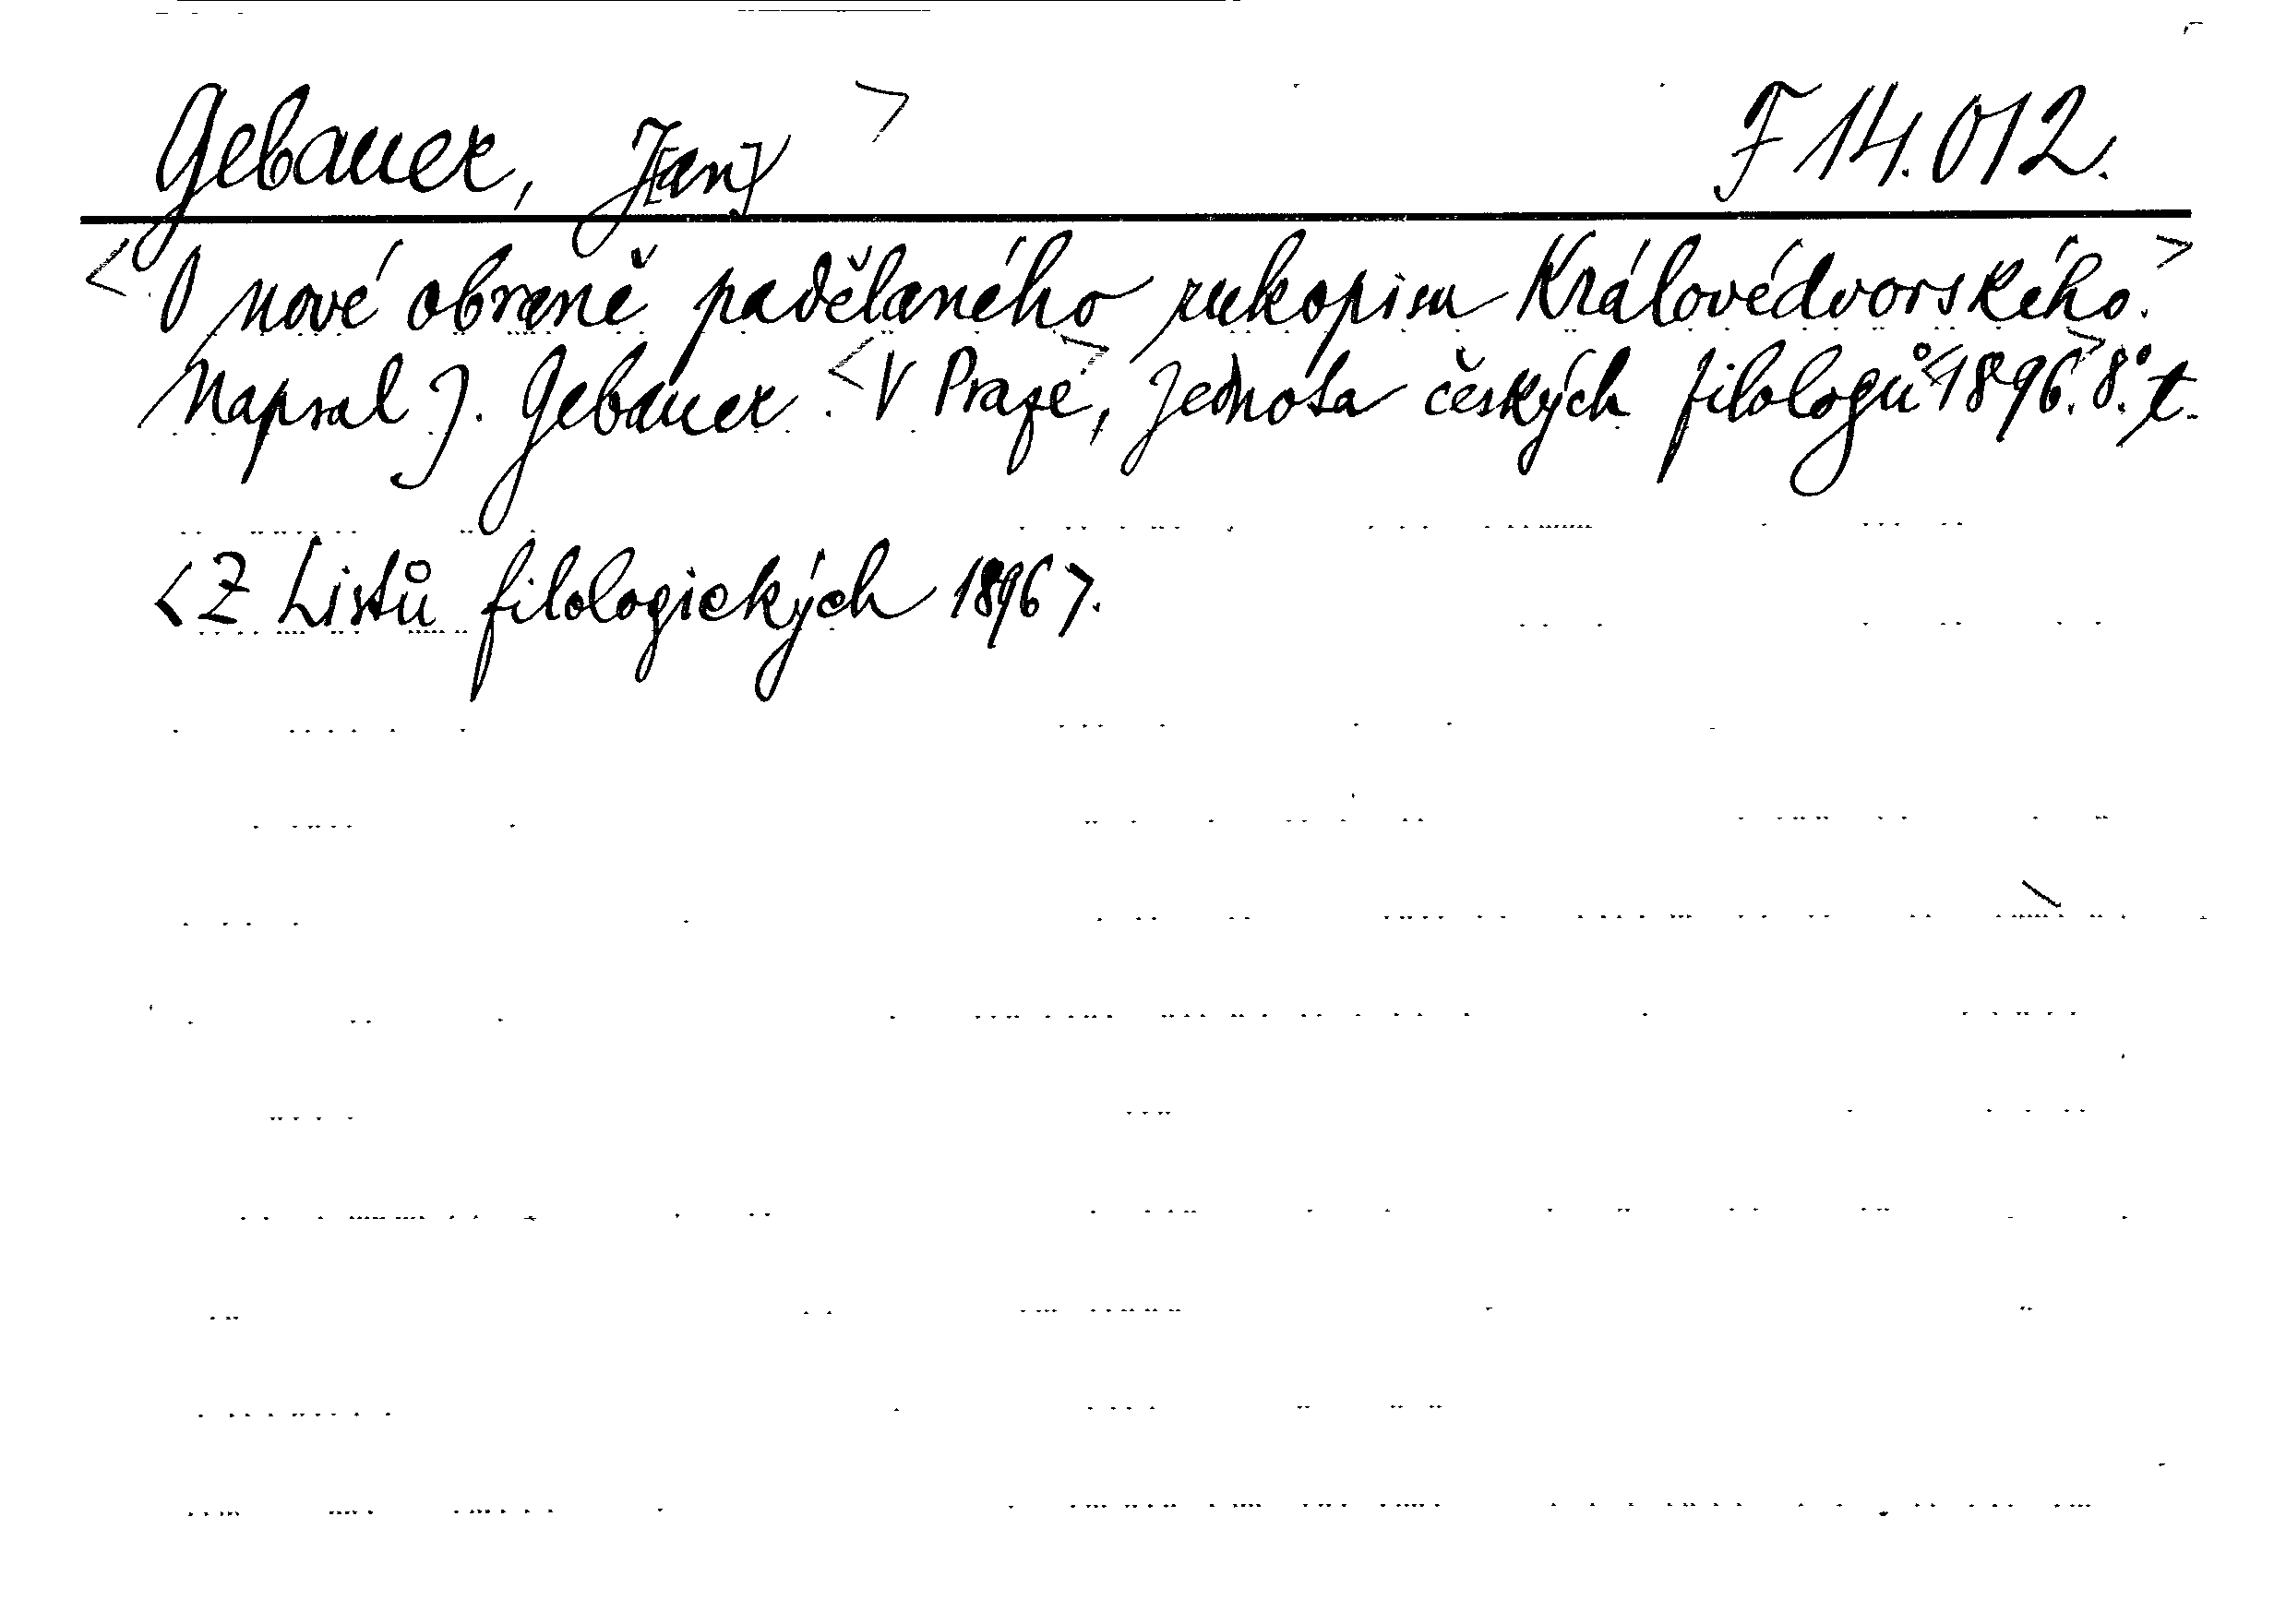 Gebauer, J[an] > F 14.012.
<O nové obraně padělaného rukopisu Královédvorského.>
Napsal J. Gebauer. <V Praze>, Jednota českých filologů <1896.> 8.° t.
<Z Listů filologických 1896>.